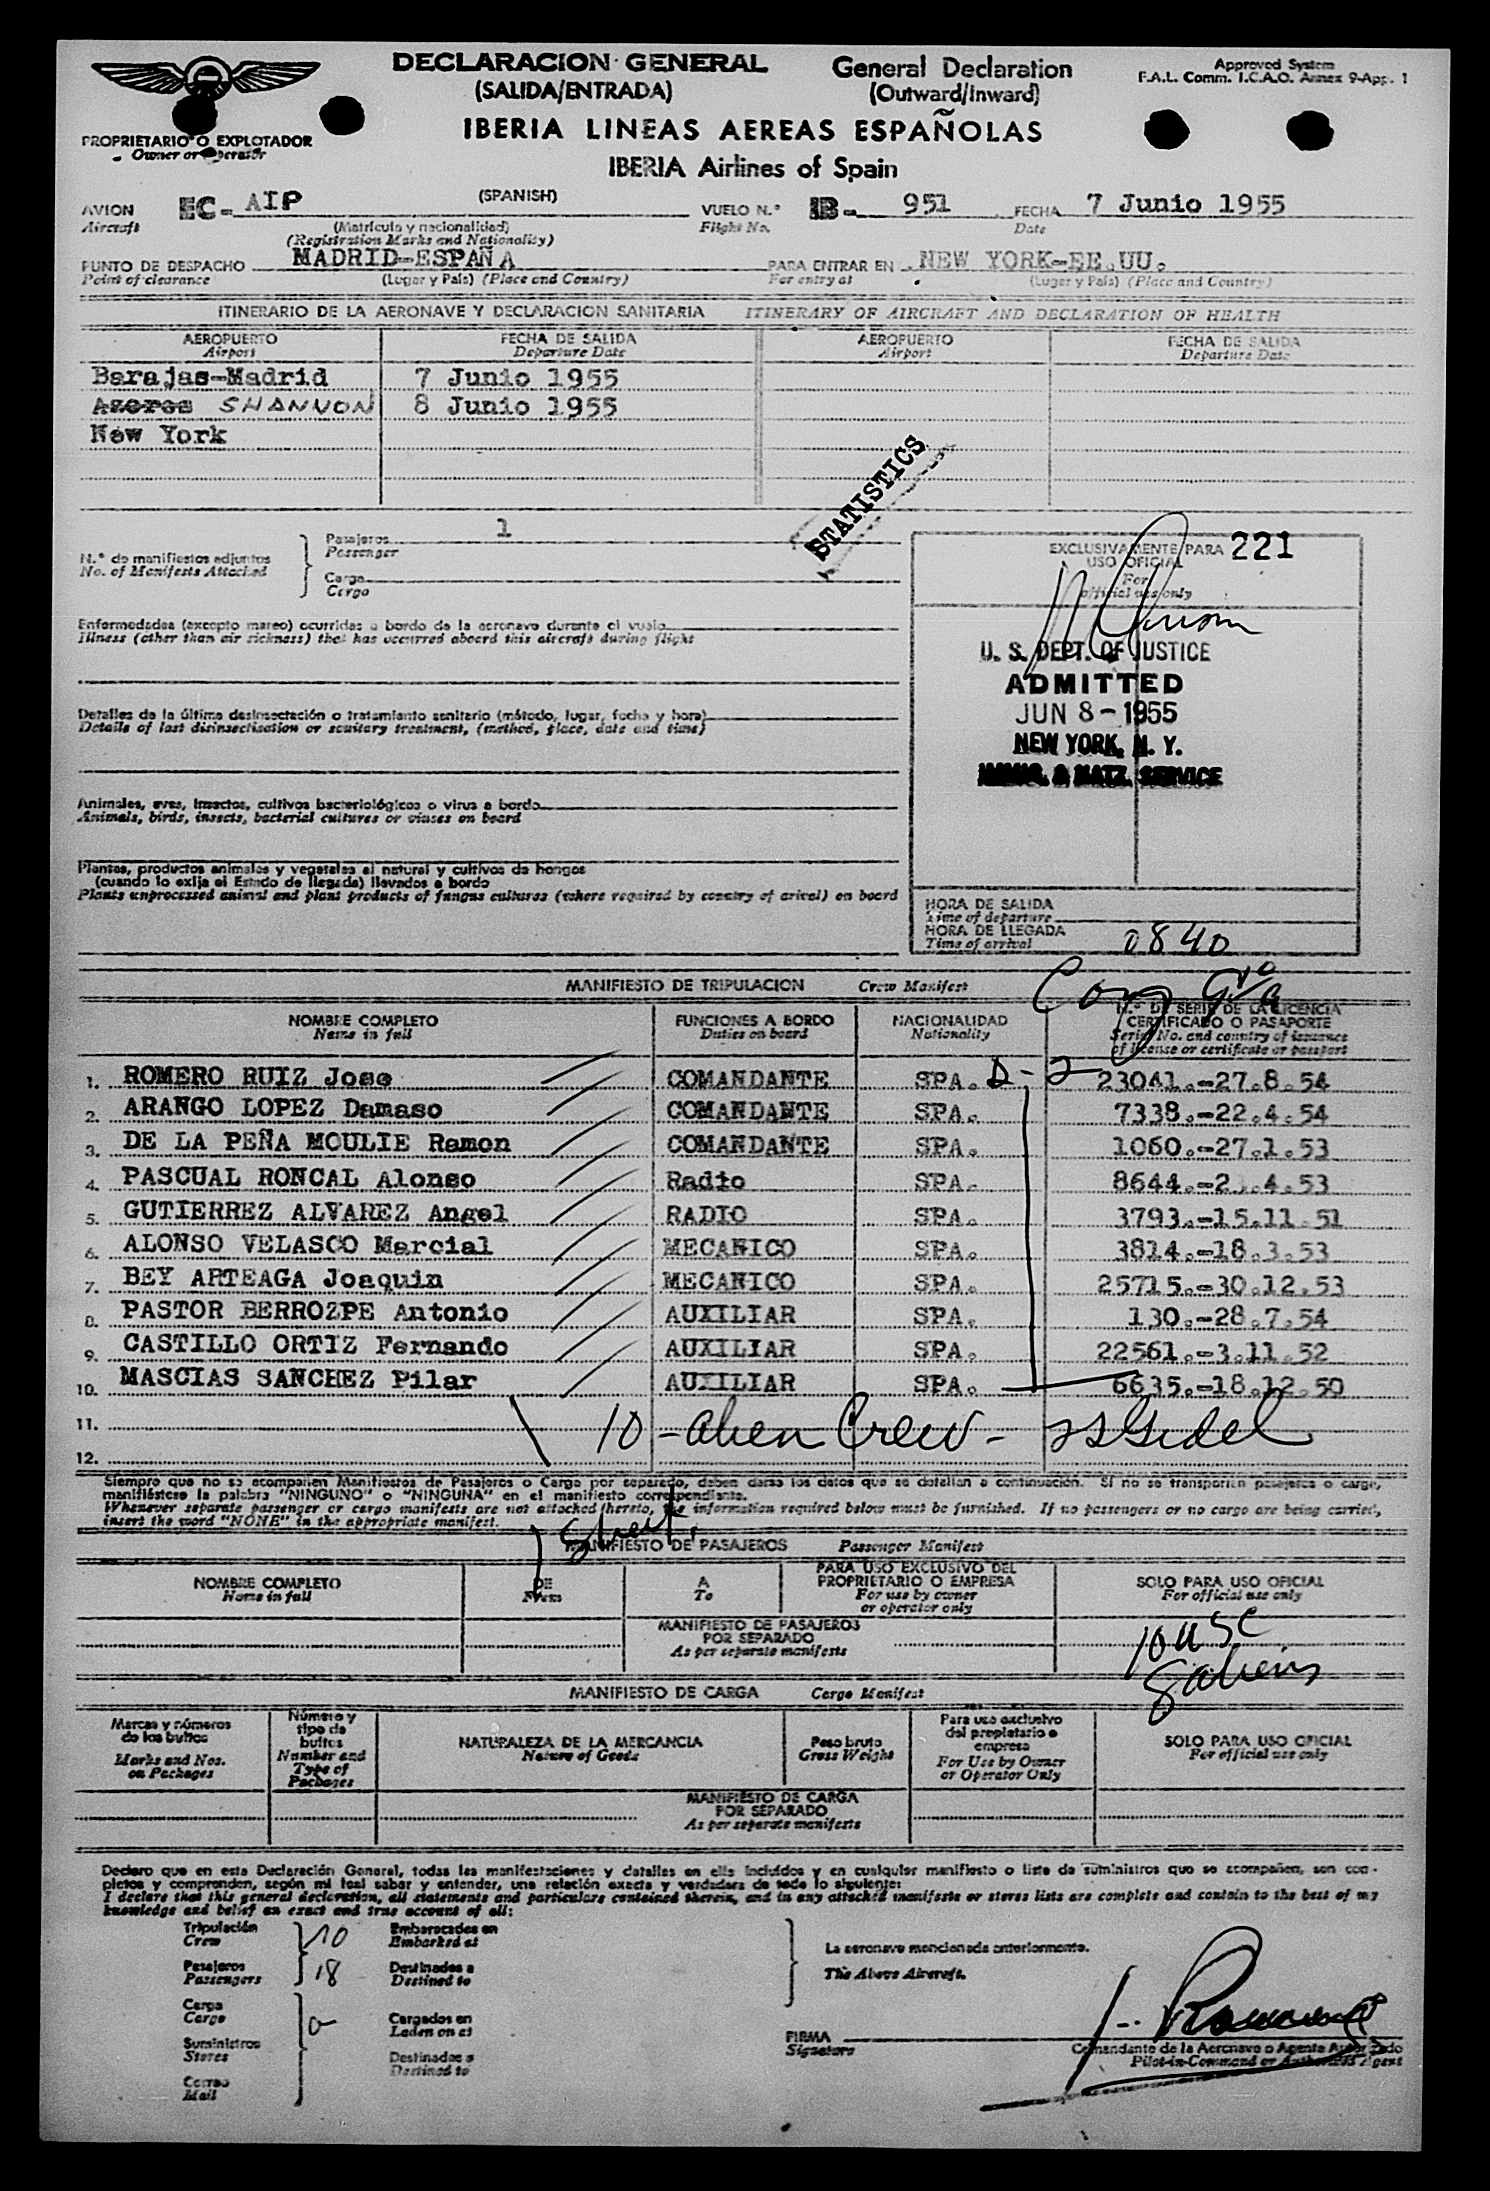 DECLARACION GENERAL
(SALIDA/ENTRADA)
General Declaration
(Outward/Inward)
Approved System
F.A.L. Comm. I.C.A.O. Annex 9-App. 1
IBERIA LINEAS AEREAS ESPAÑOLAS
IBERIA Airlines of Spain
PROPRIETARIO O EXPLOTADOR
Owner or Operator
AVION EC- AIP (SPANISH) VUELO N.° IB- 951 FECHA 7 Junio 1955
Aircraft (Matrícula y nacionalidad) Flight No. Date
(Registration Marks and Nationality)
PUNTO DE DESPACHO MADRID-ESPAÑA PARA ENTRAR EN NEW YORK-EE.UU.
Point of clearance (Lugar y País) (Place and Country) For entry at (Lugar y País) (Place and Country)
ITINERARIO DE LA AERONAVE Y DECLARACION SANITARIA ITINERARY OF AIRCRAFT AND DECLARATION OF HEALTH
AEROPUERTO FECHA DE SALIDA AEROPUERTO FECHA DE SALIDA
Airport Departure Date Airport Departure Date
Barajas-Madrid 7 Junio 1955
Azores SHANNON 8 Junio 1955
New York
STATISTICS
N.° de manifiestos adjuntos
No. of Manifests Attached
Pasajeros 1
Passenger
Carga
Cargo
EXCLUSIVAMENTE PARA 221
USO OFICIAL
For
official use only
Enfermedades (excepto mareo) ocurridas a bordo de la aeronave durante el vuelo
Illness (other than air sickness) that has occurred aboard this aircraft during flight
U. S. DEPT. OF JUSTICE
ADMITTED
JUN 8 - 1955
NEW YORK, N. Y.
IMMIG. & NATZ. SERVICE
Detalles de la última desinsectación o tratamiento sanitario (método, lugar, fecha y hora)
Details of last disinsectisation or sanitary treatment, (method, place, date and time)
Animales, aves, insectos, cultivos bacteriológicos o virus a bordo
Animals, birds, insects, bacterial cultures or viuses on board
Plantas, productos animales y vegetales al natural y cultivos de hongos
(cuando lo exija el Estado de llegada) llevados a bordo
Plants unprocessed animal and plant products of fungus cultures (where required by country of arival) on board
HORA DE SALIDA
Time of departure
HORA DE LLEGADA
Time of arrival 0840
MANIFIESTO DE TRIPULACION Crew Manifest
NOMBRE COMPLETO FUNCIONES A BORDO NACIONALIDAD N.° DE SERIE DE LA LICENCIA
Name in full Duties on board Nationality CERTIFICADO O PASAPORTE
Serial No. and country of issuance
of license or certificate or passport
1. ROMERO RUIZ Jose COMANDANTE SPA. D-2 23041.-27.8.54
2. ARANGO LOPEZ Damaso COMANDANTE SPA. 7338.-22.4.54
3. DE LA PEÑA MOULIE Ramon COMANDANTE SPA. 1060.-27.1.53
4. PASCUAL RONCAL Alonso Radio SPA. 8644.-2 .4.53
5. GUTIERREZ ALVAREZ Angel RADIO SPA. 3793.-15.11.51
6. ALONSO VELASCO Marcial MECANICO SPA. 3814.-18.3.53
7. BEY ARTEAGA Joaquin MECANICO SPA. 25715.-30.12.53
8. PASTOR BERROZPE Antonio AUXILIAR SPA. 130.-28.7.54
9. CASTILLO ORTIZ Fernando AUXILIAR SPA. 22561.-3.11.52
10. MASCIAS SANCHEZ Pilar AUXILIAR SPA. 6635.-18.12.50
11. 10 - alien Crew -
12.
Siempre que no se acompañen Manifiestos de Pasajeros o Carga por separado, deben darse los datos que se detallan a continuación. Si no se transportan pasajeros o carga,
manifiéstese la palabra "NINGUNO" o "NINGUNA" en el manifiesto correspondiente.
Whenever separate passenger or cargo manifests are not attached thereto, the information required below must be furnished. If no passengers or no cargo are being carried,
insert the word "NONE" in the appropriate manifest.
MANIFIESTO DE PASAJEROS Passenger Manifest
NOMBRE COMPLETO DE A PARA USO EXCLUSIVO DEL SOLO PARA USO OFICIAL
Name in full From To PROPRIETARIO O EMPRESA For official use only
For use by owner
or operator only
MANIFIESTO DE PASAJEROS
POR SEPARADO
As per separate manifests
10 USC
8 aliens
MANIFIESTO DE CARGA Cargo Manifest
Marcas y números
de los bultos
Marks and Nos.
on Packages
Número y
tipo de
bultos
Number and
Type of
Packages
NATURALEZA DE LA MERCANCIA
Nature of Goods
Peso bruto
Gross Weight
Para uso exclusivo
del propietario o
empresa
For Use by Owner
or Operator Only
SOLO PARA USO OFICIAL
For official use only
MANIFIESTO DE CARGA
POR SEPARADO
As per separate manifests
Declaro que en esta Declaración General, todas las manifestaciones y detalles en ella incluidos y en cualquier manifiesto o lista de suministros que se acompañen, son com-
pletos y comprenden, según mi leal saber y entender, una relación exacta y verdadera de todo lo siguiente:
I declare that this general declaration, all statements and particulars contained therein, and in any attached manifests or stores lists are complete and contain to the best of my
knowledge and belief an exact and true account of all:
Tripulación 10 Embarcados en
Crew Embarked at
Pasajeros 18 Destinados a
Passengers Destined to
La aeronave mencionada anteriormente.
The Above Aircraft.
Carga Cargados en
Cargo Laden on at
Suministros Destinados a
Stores Destined to
Correo
Mail
FIRMA
Signature
Comandante de la Aeronave o Agente Autorizado
Pilot-in-Command or Authorized Agent